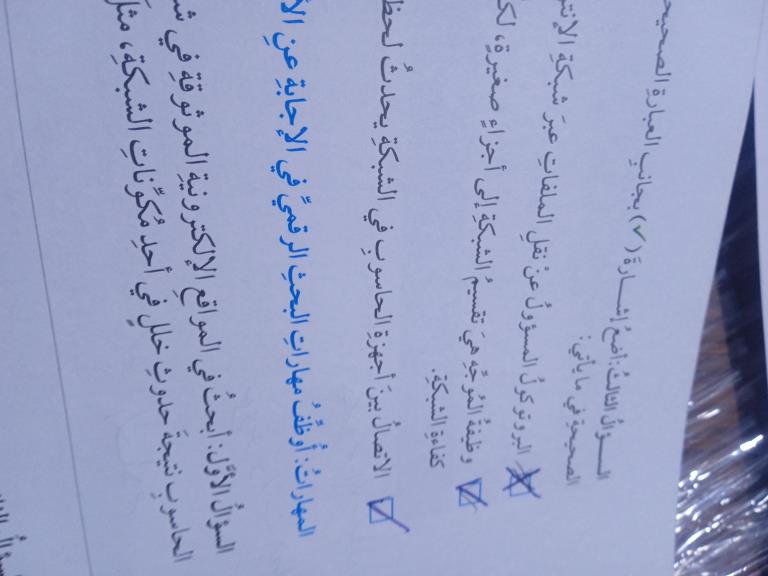 السؤالُ الثالثُ: أضعُ إشارةَ (✓) بجانبِ العبارةِ الصحيحةِ
الصحيحةِ في ما يأتي:
البروتوكولُ المسؤولُ عنْ نقلِ الملفاتِ عبرَ شبكةِ
وظيفةُ المُوَجِّهِ هيَ تقسيمُ الشبكةِ إلى أجزاءٍ صغيرةٍ،
كفاءةِ الشبكةِ.
الاتصالُ بينَ أجهزةِ الحاسوبِ في الشبكةِ يحدثُ
المهاراتُ: أُوَظِّفُ مهاراتِ البحثِ الرقميِّ في الإجابةِ عنِ
السؤالُ الأوَّلُ: أبحثُ في المواقعِ الإلكترونيةِ الموثوقةِ في
الحاسوبِ نتيجةَ حدوثِ خللٍ في أحدِ مُكوِّناتِ الشبكةِ، مثلَ